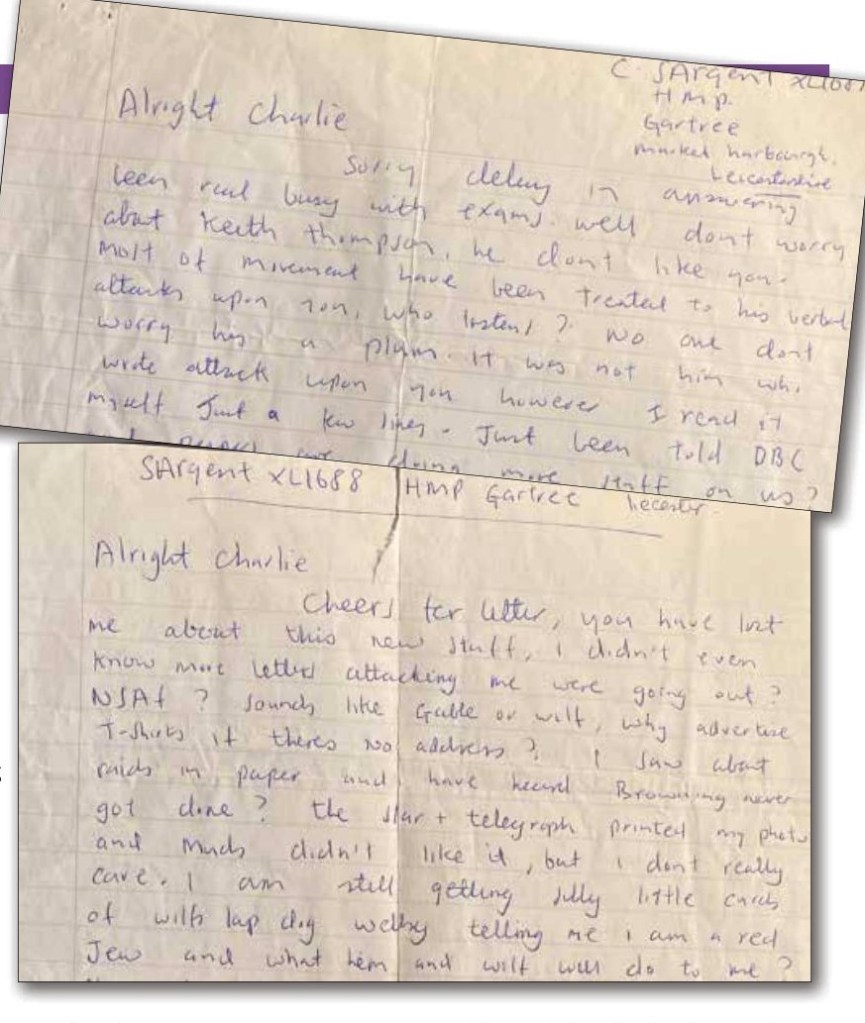 C. SArgent XL168
HMP.
Gartree
market harbourgh.
Leicestershire
Alright Charlie
Sorry delay in answering
been real busy with exams. well dont worry
about Keith thompson, he dont like you.
most of movement have been treated to his verbal
attacks upon you, who listens? No one dont
worry hes a plum. It was not him who
wrote attack upon you however I read it
myself Just a few lines. Just been told DBC
are doing more stuff on us?
SArgent XL1688 HMP Gartree Leicester.
Alright Charlie
Cheers for letter, you have lost
me about this new stuff, I didn't even
know more letters attacking me were going out?
NSAf? sounds like Gable or wilf, why advertise
T-Shirts if theres no address? I saw about
raids in paper and have heard Browning never
got done? the star + telegraph printed my photo
and muds didn't like it, but i dont really
care. I am still getting silly little cards
of wilfs lap dog welby telling me i am a red
Jew and what him and wilf will do to me?